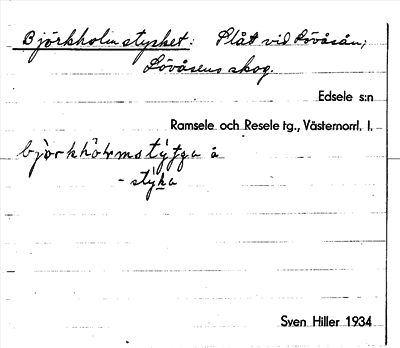 Björkholmstycket: Slåt vid Lövåsån;
Lövåsens skog.
Edsele s:n
Ramsele och Resele tg., Västernorrl. l.
björkhòrmstýʃʒa å
- stýka
Sven Hiller 1934